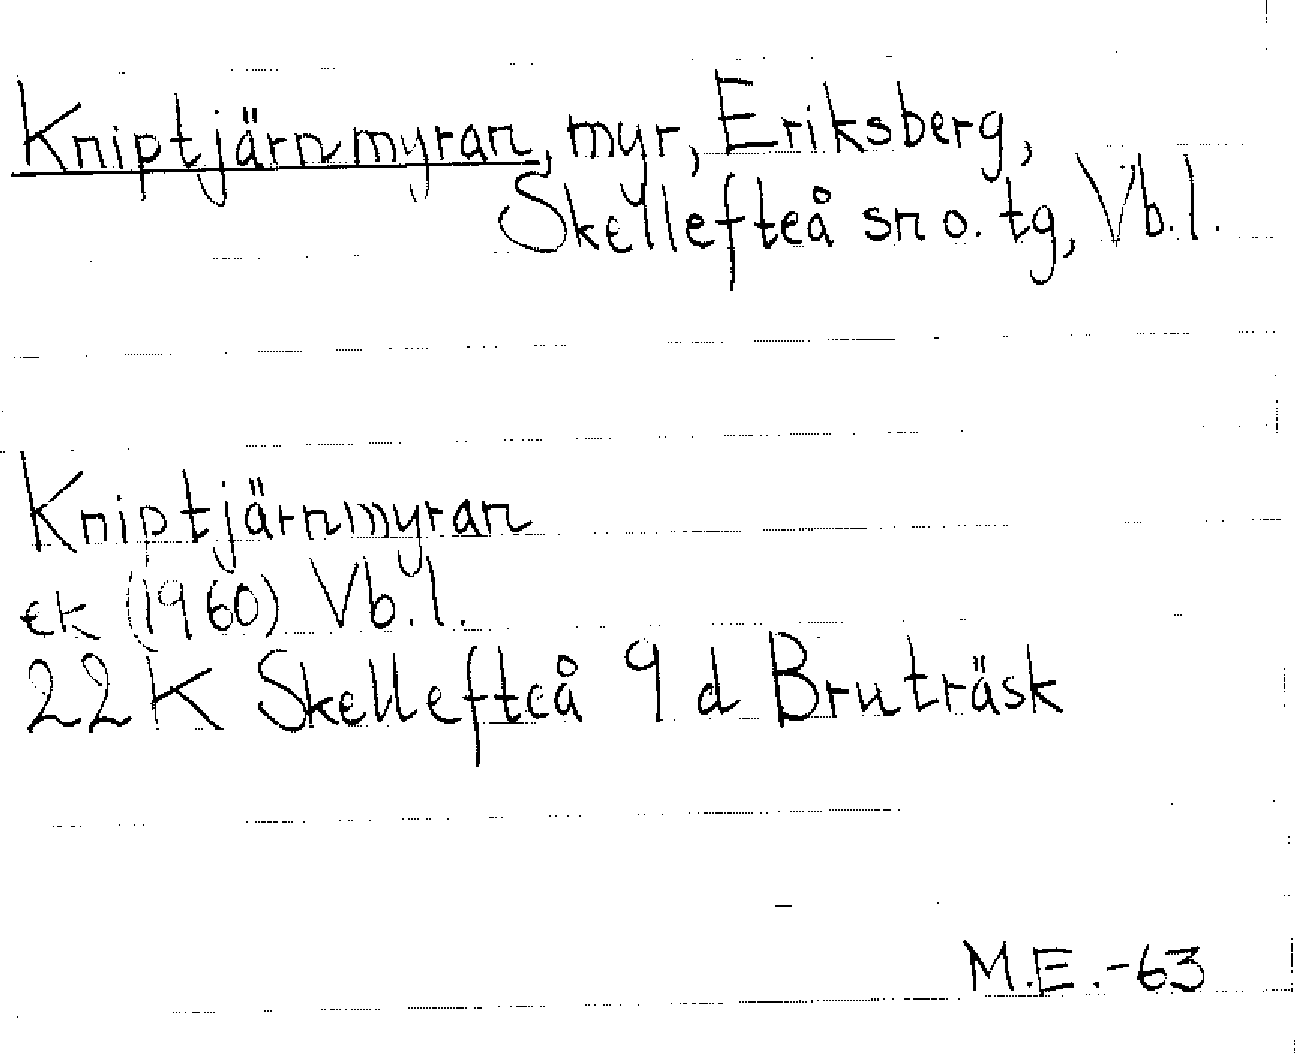 Kniptjärnmyran, myr, Eriksberg,
Skellefteå sn o. tg, Vb.l.
Kniptjärnmyran
ek (1960) Vb.l.
22 K Skellefteå 9 d Bruträsk
M.E.-63